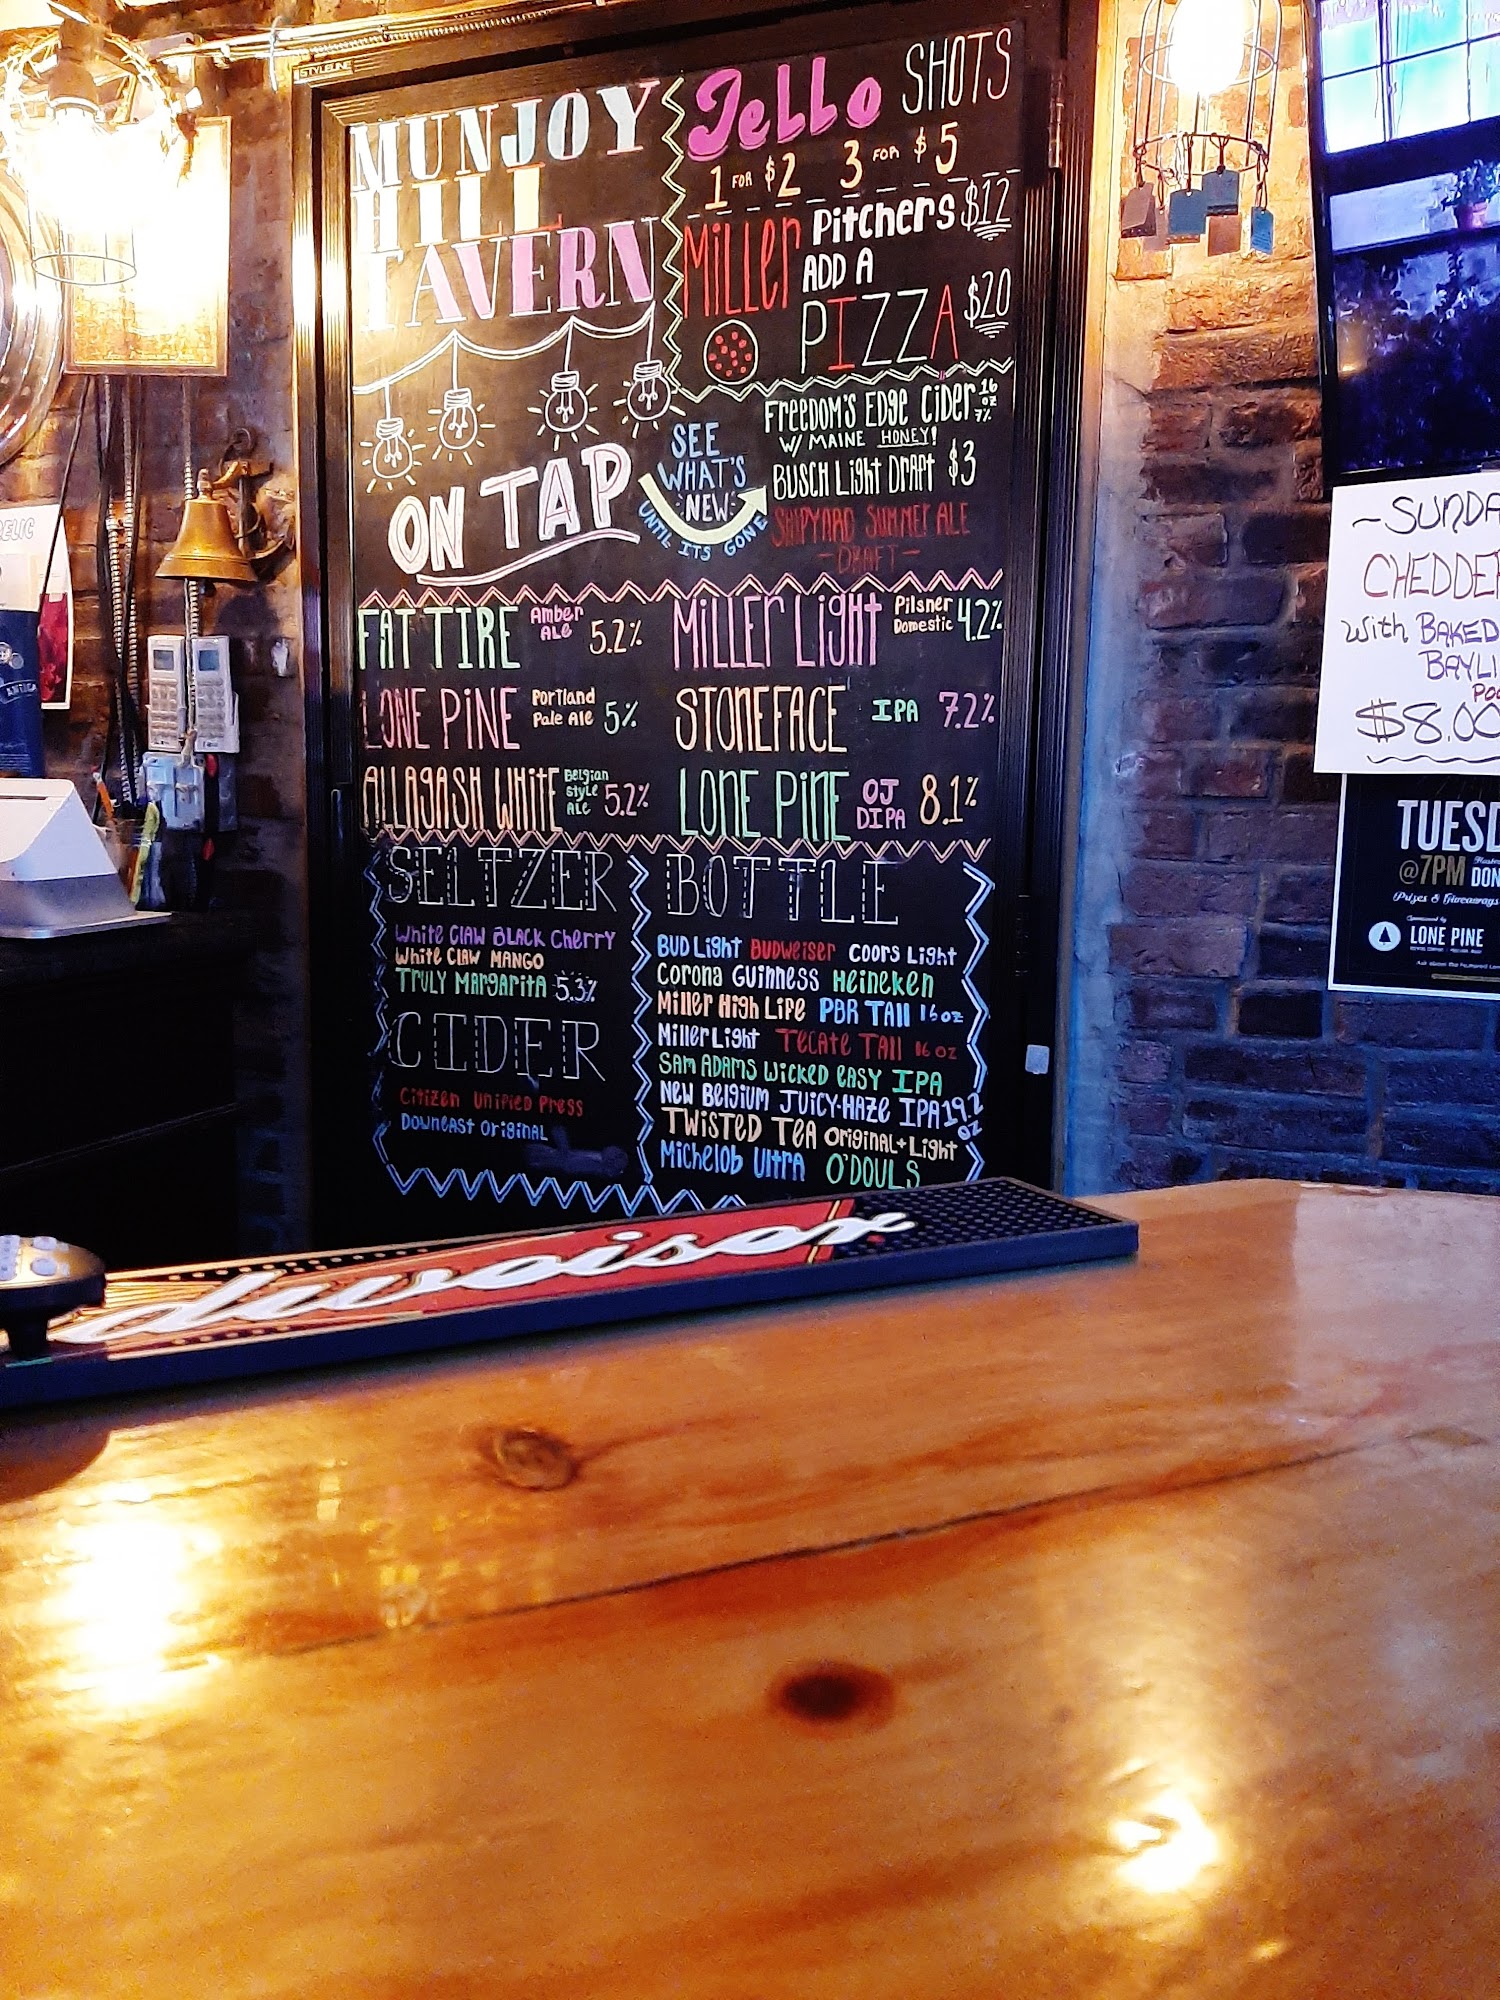 STYLELINE
MUNJOY
HILL
TAVERN
Jello SHOTS
1 FOR $2 3 FOR $5
Miller Pitchers $12
ADD A
PIZZA $20
FREEDOM'S EDGE CIDER 16 OZ 7%
W/ MAINE HONEY!
BUSCH LIGHT DRAFT $3
SHIPYARD SUMMER ALE
-DRAFT-
SEE
WHAT'S
NEW
UNTIL ITS GONE
ON TAP
FAT TIRE Amber ALE 5.2%
MILLER LIGHT Pilsner Domestic 4.2%
LONE PINE Portland Pale Ale 5%
STONEFACE IPA 7.2%
ALLAGASH WHITE Belgian Style ALE 5.2%
LONE PINE OJ DIPA 8.1%
SELTZER
White CLAW BLACK CHERRY
White CLAW MANGO
TRULY MARGARITA 5.3%
CIDER
CITIZEN UNIFIED PRESS
DOWNEAST ORIGINAL
BOTTLE
BUD LIGHT BUDWEISER COORS LIGHT
CORONA GUINNESS HEINEKEN
MILLER HIGH LIFE PBR TALL 16oz
MILLER LIGHT TECATE TALL 16 oz
SAM ADAMS WICKED EASY IPA
NEW BELGIUM JUICY-HAZE IPA 19.2 OZ
TWISTED TEA ORIGINAL + LIGHT
MICHELOB ULTRA O'DOULS
~SUNDA
CHEDDE
With BAKED
BAYLI
$8.00
TUESD
@7PM
DON
Prizes & Giveaways
LONE PINE